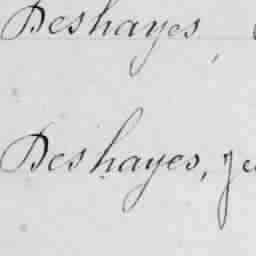 Deshayes,
Deshayes, je